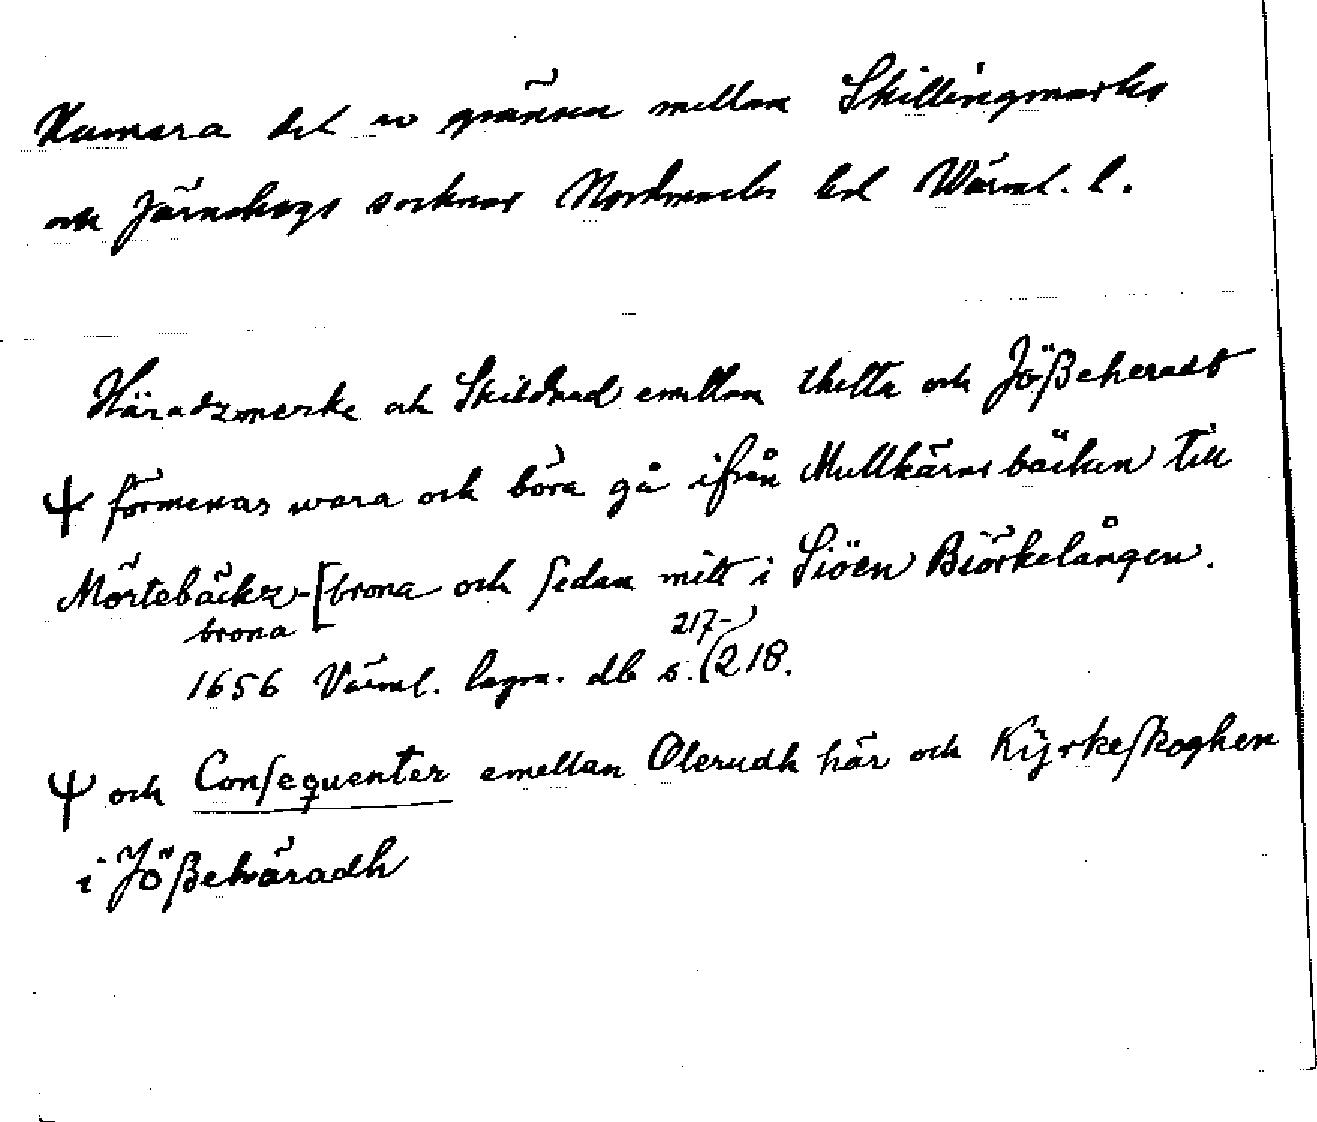 Humra del av gränsen mellan Skillingmarks
och Järnskogs socknar Nordmarks hd Wärml. l.
Häradzmerke och Skildnad emellan thetta och Jößeheradt
ψ förmenas wara och böra gå ifrån Mullkärns bäcken till
Mörtebäckz-[brona och sedan mitt i Siöen Biörkelången.
brona
217-
1656 Värml. lagm. db s. (218.
ψ och Consequenter emellan Olerudh här och Kyrkeskoghen
i Jößehäradh